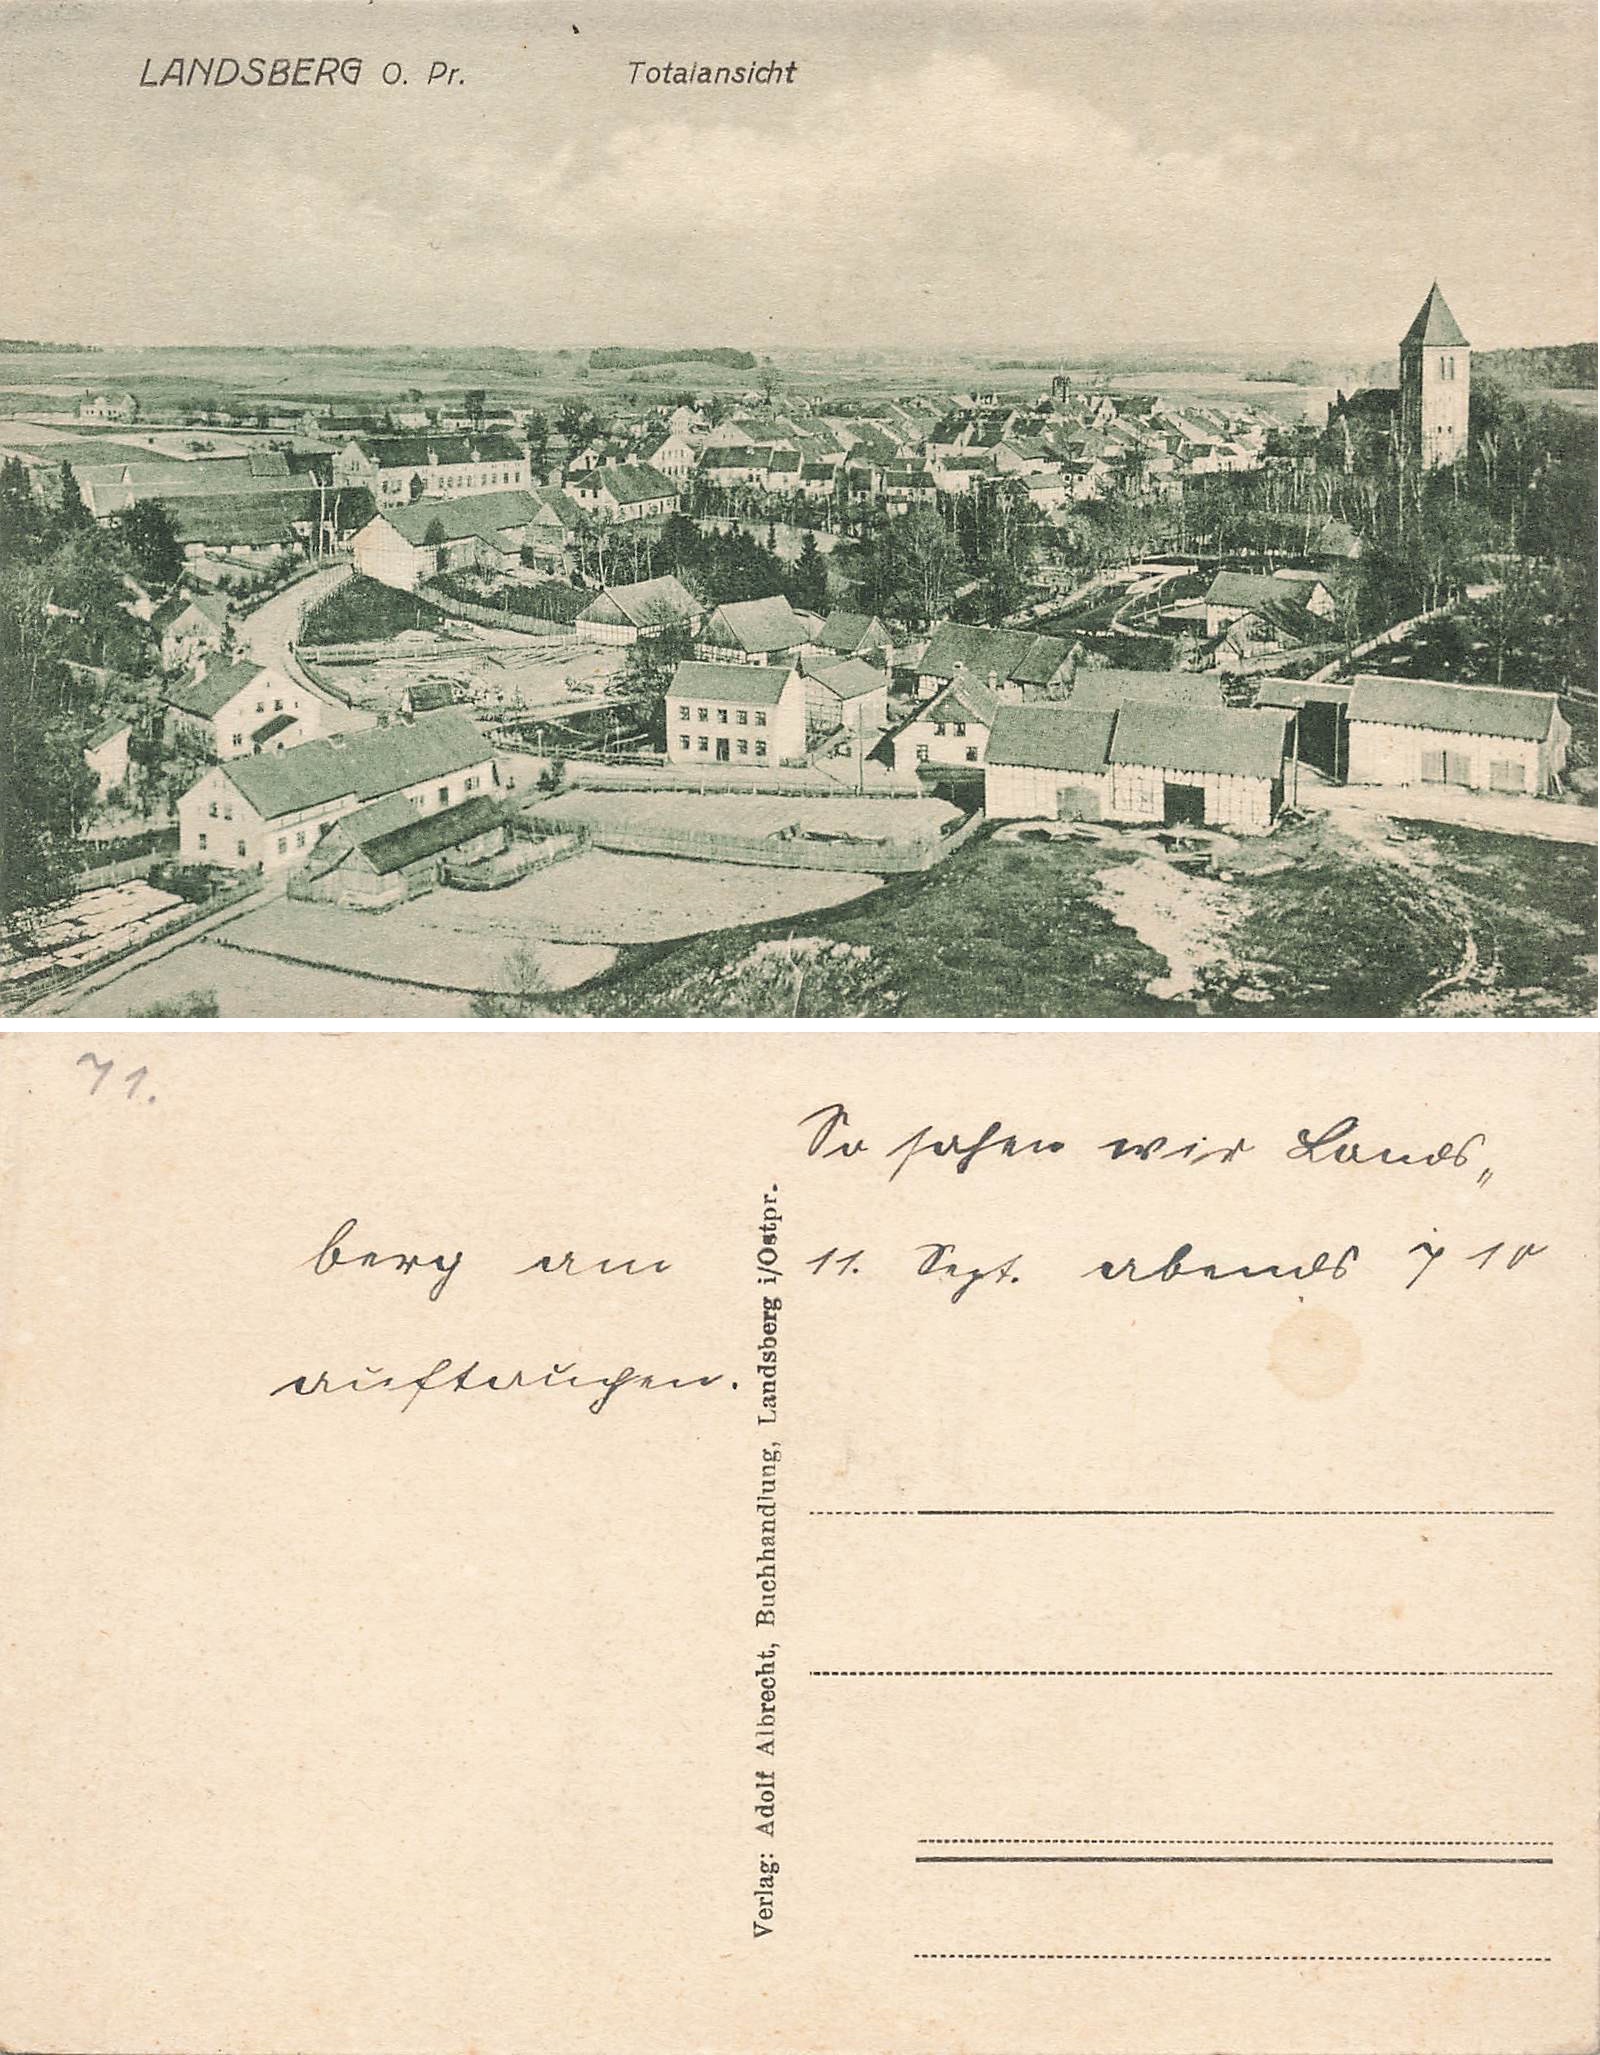 LANDSBERG O. Pr. Totalansicht
71.
So sahen wir Lands„
berg am 11. Sept. abends 7 10
auftauchen.
Verlag: Adolf Albrecht, Buchhandlung, Landsberg i/Ostpr.